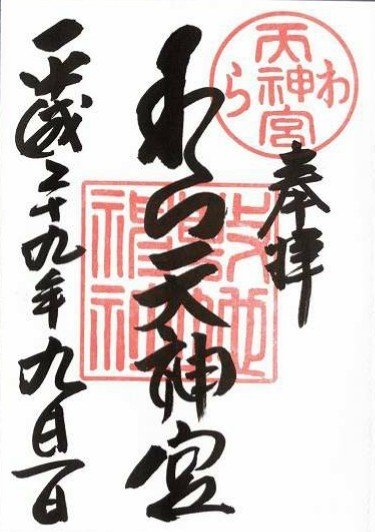 奉拝
わら天神宮
わら天神宮
敷地
神社
平成二十九年九月一日